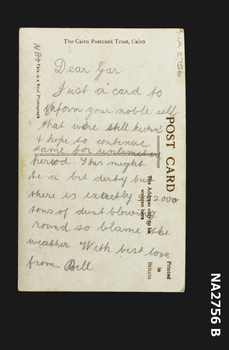 The Cairo Postcard Trust, Cairo
Dear Gar
Just a card to
inform your noble self
that we're still kickin'
& hope to continue
same for unlimited
period. This might
be a bit dirty but
there is exactly 000
tons of dust blowing
round so blame the
weather. With best love
from Bill
POST CARD
The Address only to be
written here
Printed
in
Britain
NB This is a Real Photograph
NA2756
NA2756 B